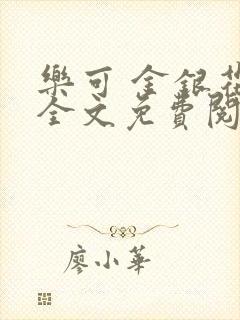 樂可 金銀花
全文免費閱
廖小華